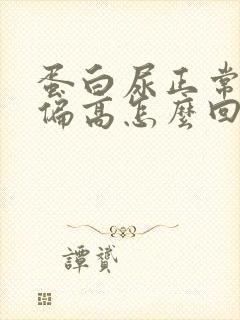 蛋白尿正常
偏高怎麼回
譚贇